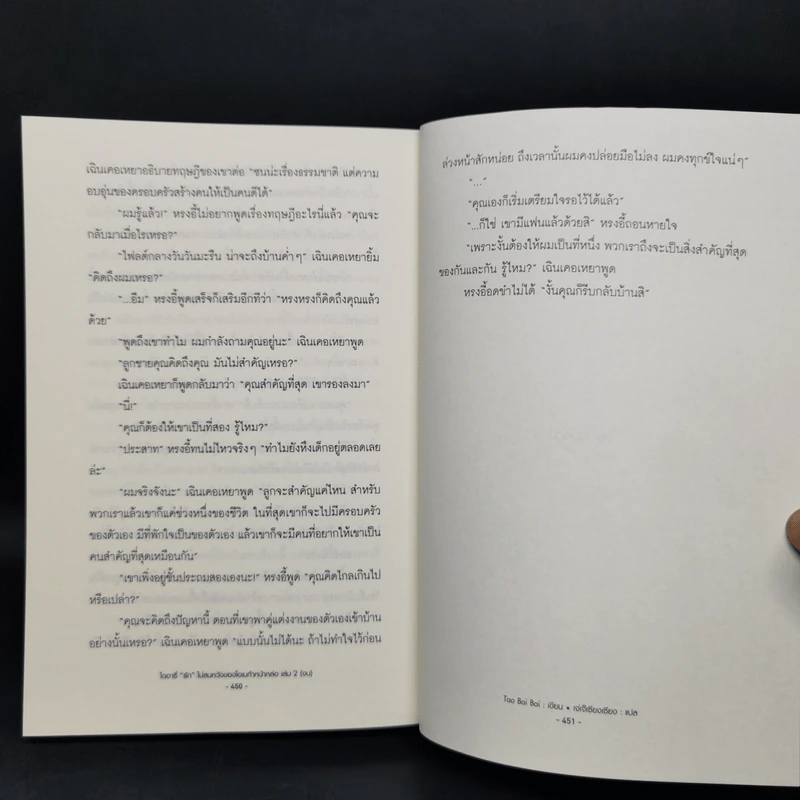 เฉินเคอเหยาอธิบายทฤษฎีของเขาต่อ "ซนน่ะเรื่องธรรมชาติ แต่ความ
อบอุ่นของครอบครัวสร้างคนให้เป็นคนดีได้"
"ผมรู้แล้ว!" หรงอี้ไม่อยากพูดเรื่องทฤษฎีอะไรนี่แล้ว "คุณจะ
กลับมาเมื่อไรเหรอ?"
"ไฟลต์กลางวันวันมะรืน น่าจะถึงบ้านค่ำๆ" เฉินเคอเหยายิ้ม
"คิดถึงผมเหรอ?"
"...อืม" หรงอี้พูดเสร็จก็เสริมอีกทีว่า "หรงหรงก็คิดถึงคุณแล้ว
ด้วย"
"พูดถึงเขาทำไม ผมกำลังถามคุณอยู่นะ" เฉินเคอเหยาพูด
"ลูกชายคุณคิดถึงคุณ มันไม่สำคัญเหรอ?"
เฉินเคอเหยาก็พูดกลับมาว่า "คุณสำคัญที่สุด เขารองลงมา"
"นี่!"
"คุณก็ต้องให้เขาเป็นที่สอง รู้ไหม?"
"ประสาท" หรงอี้ทนไม่ไหวจริงๆ "ทำไมยังหึงเด็กอยู่ตลอดเลย
ล่ะ"
"ผมจริงจังนะ" เฉินเคอเหยาพูด "ลูกจะสำคัญแค่ไหน สำหรับ
พวกเราแล้วเขาก็แค่ช่วงหนึ่งของชีวิต ในที่สุดเขาก็จะไปมีครอบครัว
ของตัวเอง มีที่พักใจเป็นของตัวเอง แล้วเขาก็จะมีคนที่อยากให้เขาเป็น
คนสำคัญที่สุดเหมือนกัน"
"เขาเพิ่งอยู่ชั้นประถมสองเองนะ!" หรงอี้พูด "คุณคิดไกลเกินไป
หรือเปล่า?"
"คุณจะคิดถึงปัญหานี้ ตอนที่เขาพาคู่แต่งงานของตัวเองเข้าบ้าน
อย่างนั้นเหรอ?" เฉินเคอเหยาพูด "แบบนั้นไม่ได้นะ ถ้าไม่ทำใจไว้ก่อน
ไดอารี่ "รัก" ไม่สมหวังของโอเมก้าหน้าหล่อ เล่ม 2 (จบ)
- 450 -
ล่วงหน้าสักหน่อย ถึงเวลานั้นผมคงปล่อยมือไม่ลง ผมคงทุกข์ใจแน่ๆ"
"..."
"คุณเองก็เริ่มเตรียมใจรอไว้ได้แล้ว"
"...ก็ใช่ เขามีแฟนแล้วด้วยสิ" หรงอี้ถอนหายใจ
"เพราะงั้นต้องให้ผมเป็นที่หนึ่ง พวกเราถึงจะเป็นสิ่งสำคัญที่สุด
ของกันและกัน รู้ไหม?" เฉินเคอเหยาพูด
หรงอี้อดขำไม่ได้ "งั้นคุณก็รีบกลับบ้านสิ"
Tao Bai Bai : เขียน • เจ่เจ๊เซียงเซียง : แปล
- 451 -